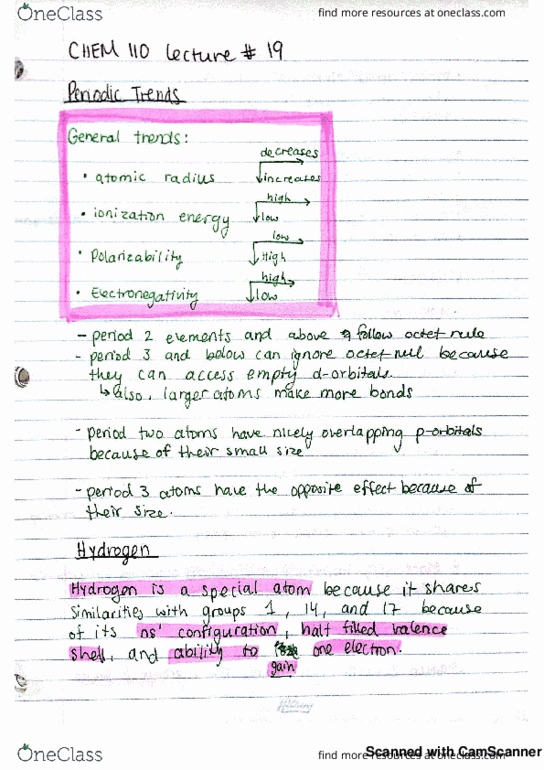 OneClass find more resources at oneclass.com
CHEM 110 Lecture # 19
Periodic Trends
General trends:
decreases
• atomic radius increases
high
• ionization energy low
low
• Polarizability High
high
• Electronegativity low
- period 2 elements and above follow octet rule
- period 3 and below can ignore octet rull because
they can access empty d-orbitals.
↳ also, larger atoms make more bonds
- period two atoms have nicely overlapping p-orbitals
because of their small size
- period 3 atoms have the opposite effect because of
their size.
Hydrogen
Hydrogen is a special atom because it shares
similarities with groups 1, 14, and 17 because
of its ns' configuration, half filled valence
shell, and ability to one electron.
gain
OneClass find more resources at oneclass.com
Scanned with CamScanner